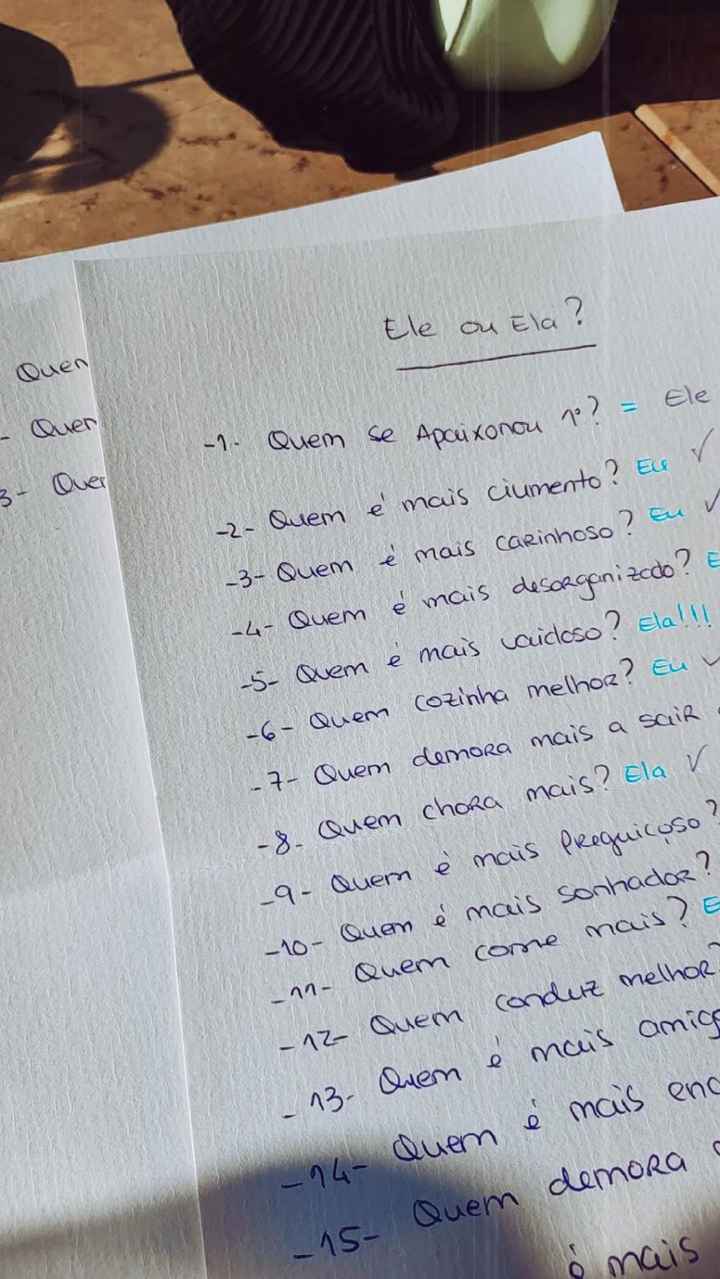 Ele ou Ela?
Quen
- Quer
3- Quer
-1- Quem se Apaixonou 1º? = Ele
-2- Quem é mais ciumento? Eu ✓
-3- Quem é mais carinhoso? Eu ✓
-4- Quem é mais desorganizado? E
-5- Quem é mais vaidoso? Ela!!!
-6- Quem cozinha melhor? Eu ✓
-7- Quem demora mais a sair
-8- Quem chora mais? Ela ✓
-9- Quem é mais preguiçoso?
-10- Quem é mais sonhador?
-11- Quem come mais? E
-12- Quem conduz melhor?
-13- Quem é mais amig
-14- Quem é mais en
-15- Quem demora
é mais